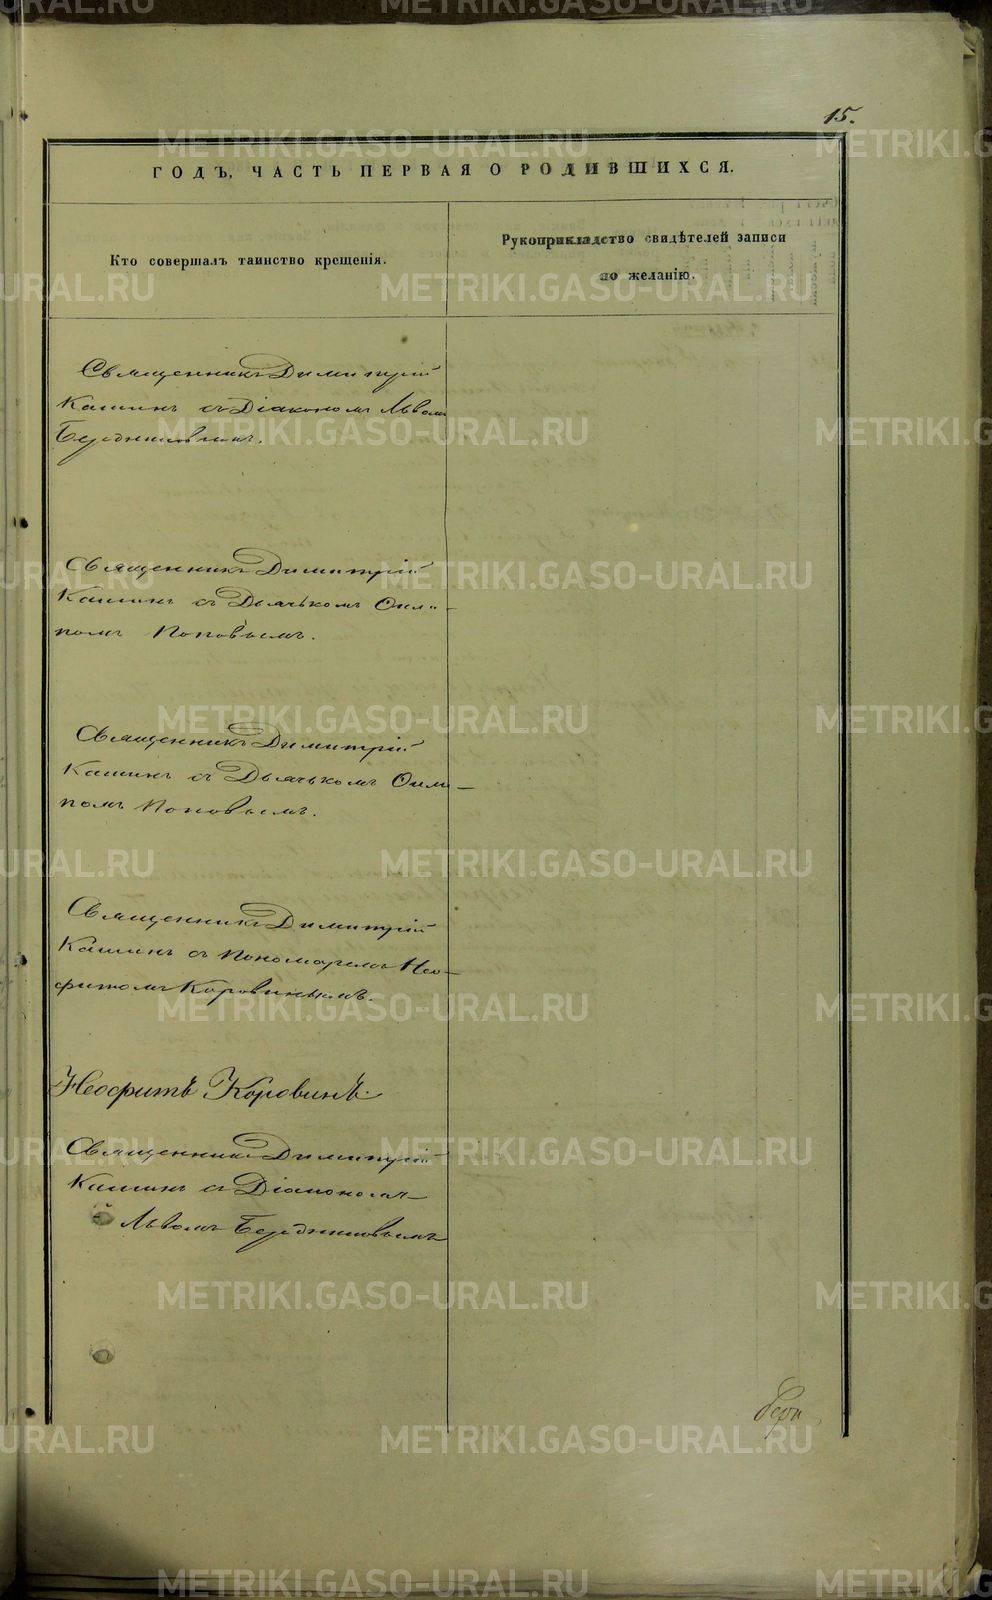 15.
ГОДЪ, ЧАСТЬ ПЕРВАЯ О РОДИВШИХСЯ.
Кто совершалъ таинство крещенія.
Рукоприкладство свидѣтелей записи
по желанію.
Священникъ Димитрій
Кашинъ съ Діакономъ Львомъ
Бердниковымъ.
Священникъ Димитрій
Кашинъ съ Дьячькомъ Оли-
помъ Поповымъ.
Священникъ Димитрій
Кашинъ съ Дьячькомъ Олим-
помъ Поповымъ.
Священникъ Димитрій
Кашинъ съ Пономаремъ Нео-
фитомъ Коровинымъ.
Неофитъ Коровинъ
Священникъ Димитрій
Кашинъ съ Діакономъ
Львомъ Бердниковымъ
METRIKI.GASO-URAL.RU